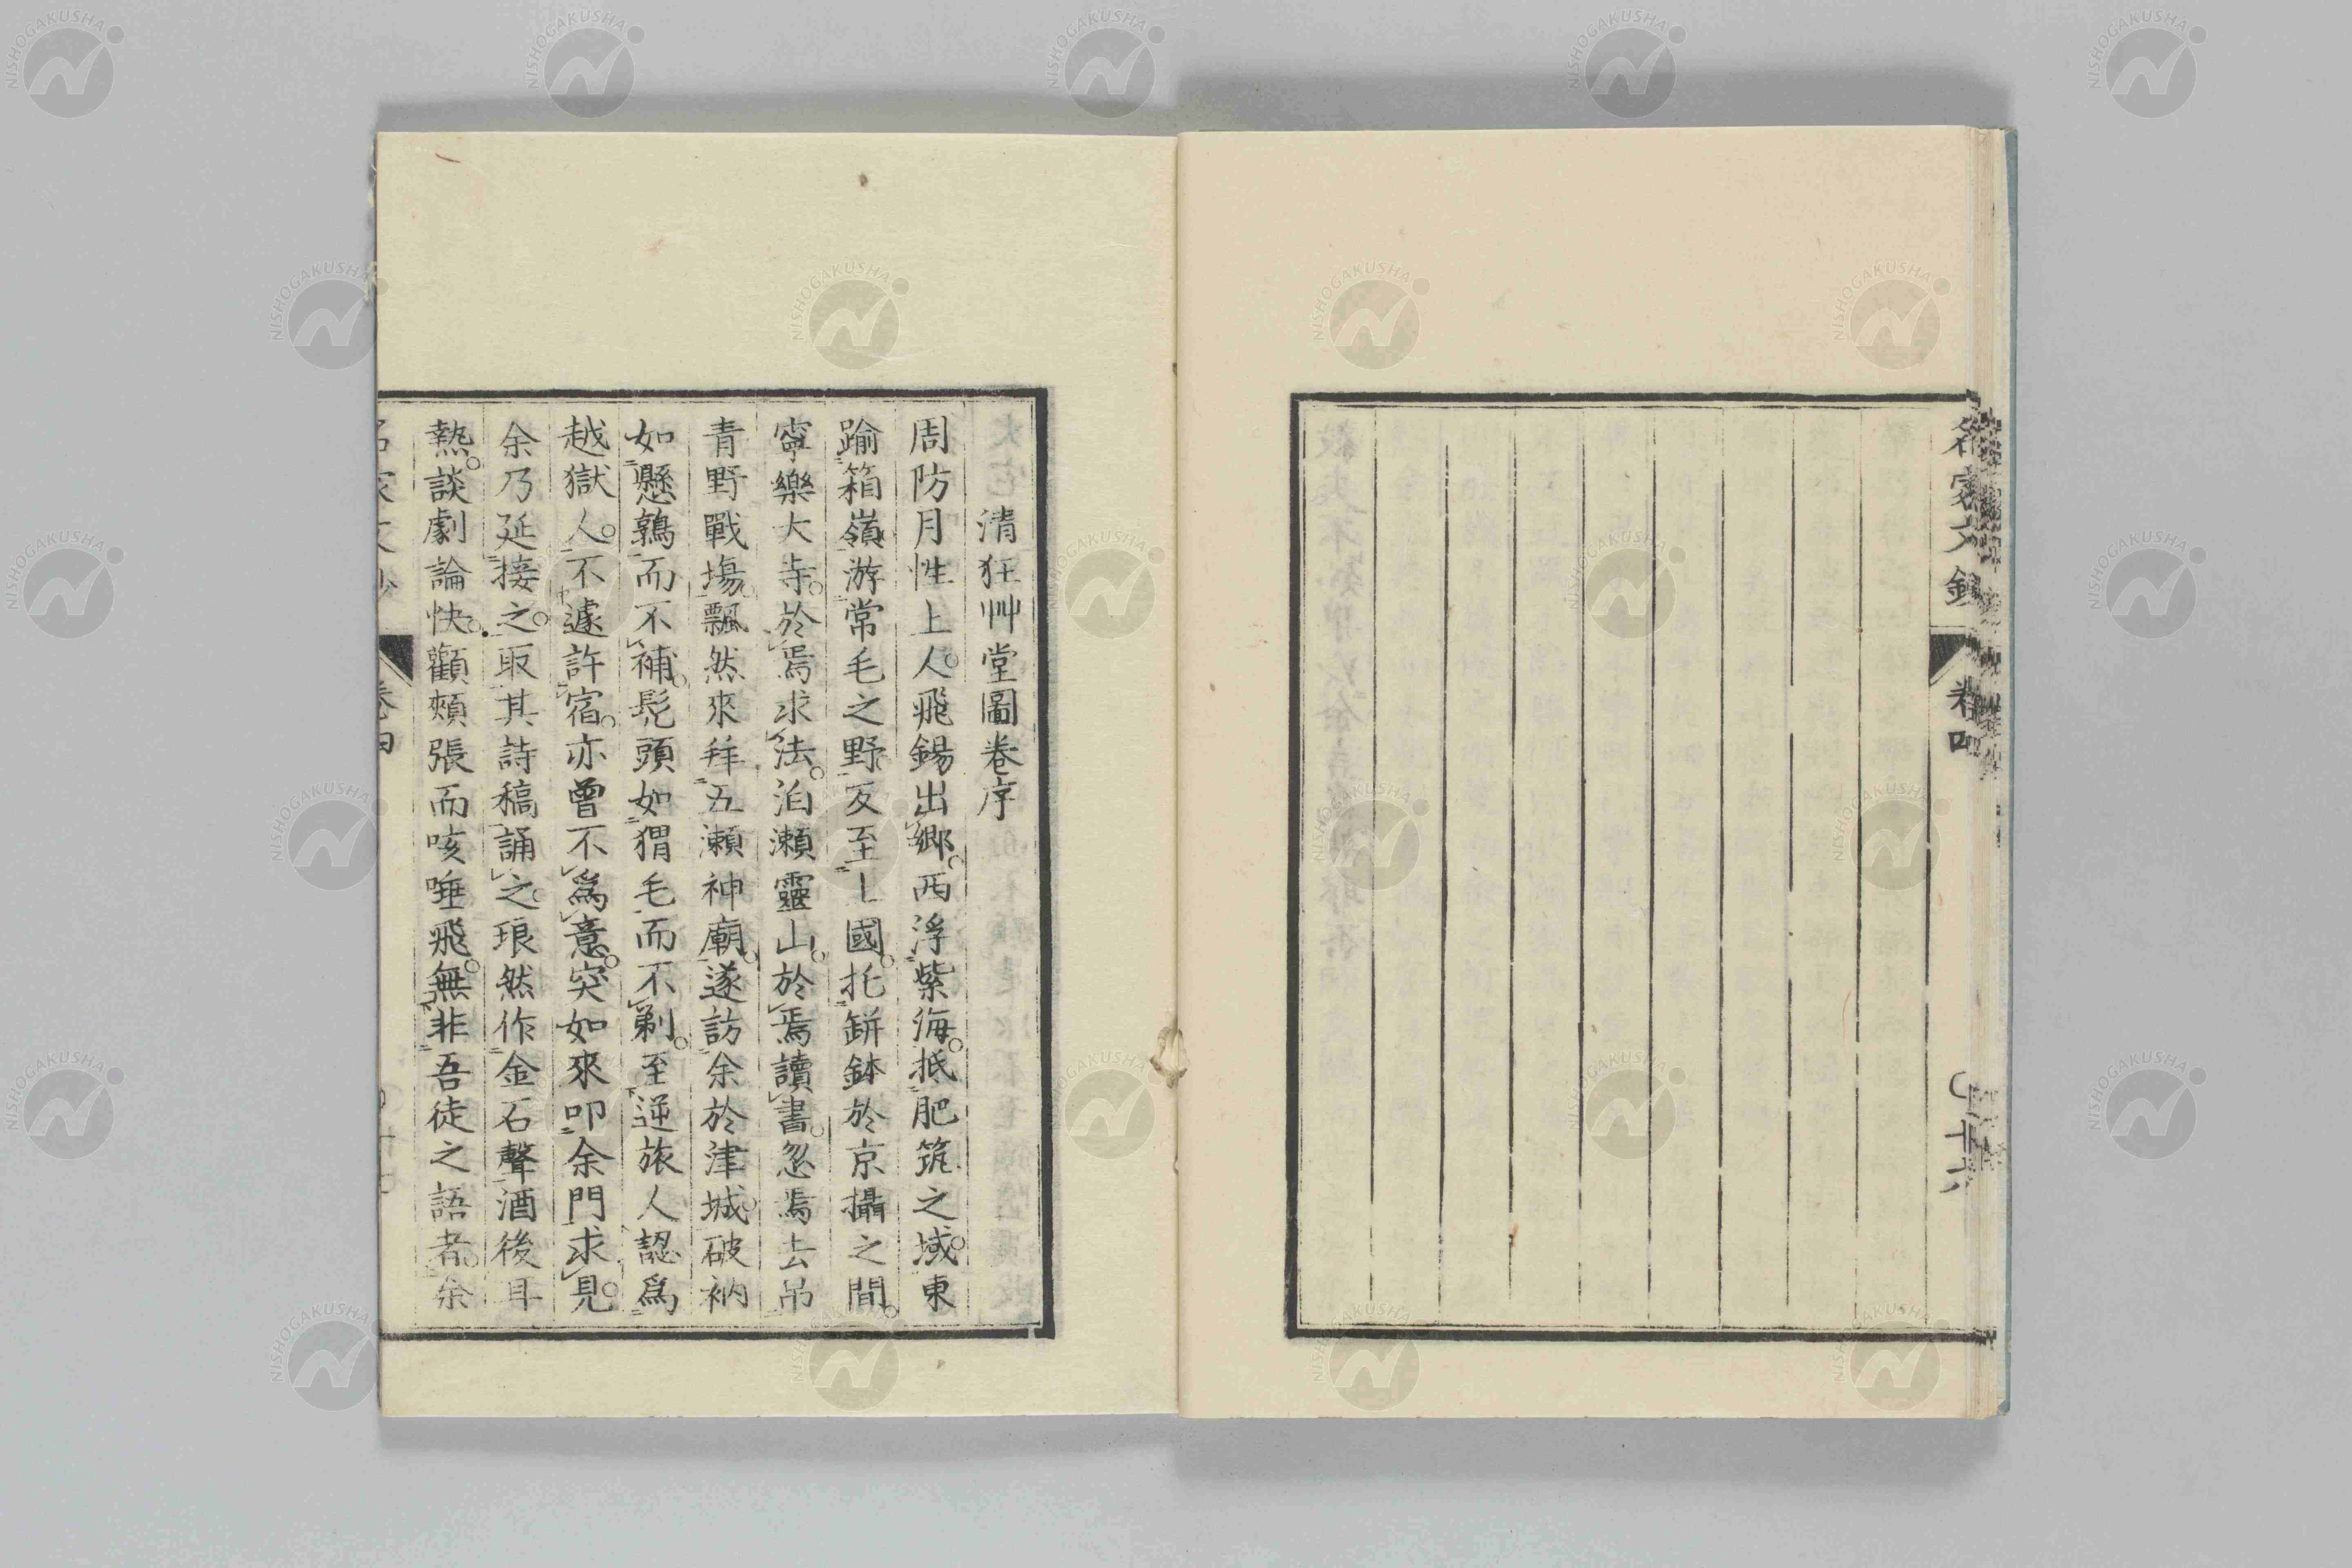 名家文鈔
卷四
廿六
清狂艸堂圖卷序
周防月性上人飛錫出鄉西浮紫海抵肥筑之域東
踰箱嶺游常毛之野反至上國托缾鉢於京攝之間
寧樂大寺於焉求法泊瀨靈山於焉讀書忽焉去吊
青野戰場飄然來拜五瀨神廟遂訪余於津城破衲
如懸鶉而不補髡頭如猬毛而不剃至逆旅人認爲
越獄人不遽許宿亦曾不爲意突如來叩余門求見
余乃延接之取其詩稿誦之琅然作金石聲酒後耳
熱談劇論快顴頰張而咳唾飛無非吾徒之語者余
名家文鈔
卷四
NISHOGAKUSHA